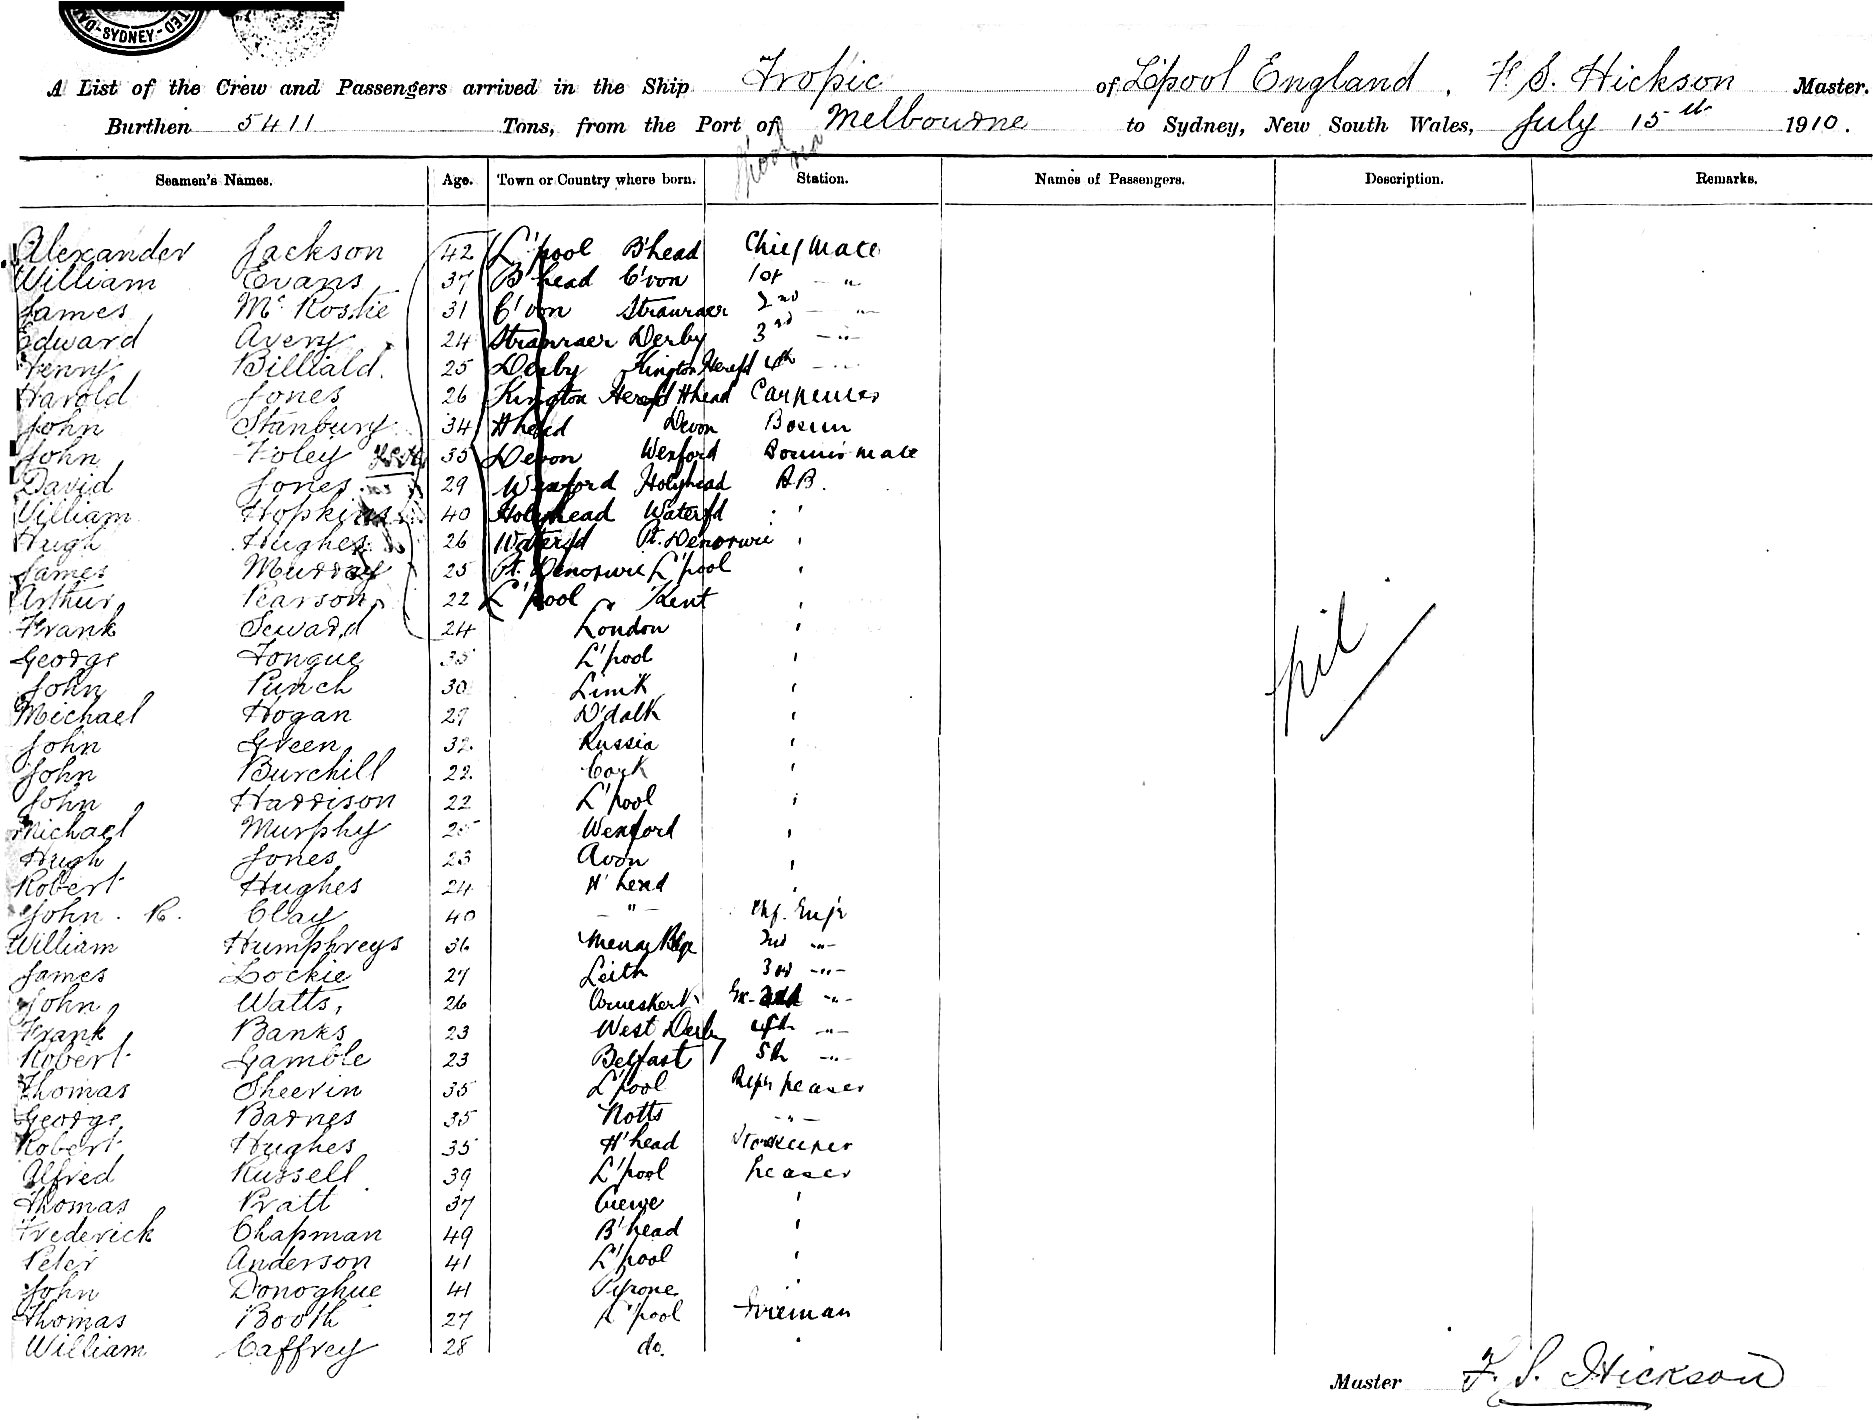 SYDNEY
A List of the Crew and Passengers arrived in the Ship Tropic of L'pool England, F. S. Hickson Master.
Burthen 5411 Tons, from the Port of Melbourne to Sydney, New South Wales, July 15th 1910.
Seamen's Names. Age. Town or Country where born. Station. Names of Passengers. Description. Remarks.
Alexander Jackson 42 L'pool B'head Chief Mate
William Evans 37 B'head C'von 1st - " 
James 31 C'von Stranraer 2nd - "
Edward Avery 24 Stranraer Derby 3rd - " -
Henry Billiald. 25 Derby Kington Herefd 4th - "
Harold Jones 26 Kington Herefd H head Carpenter
John Stanbury 34 H head Devon Bosun
John Foley 35 Devon Wexford Bosun's mate
David Jones 29 Wexford Holyhead A B.
William Hopkins 40 Holyhead Waterfd "
Hugh Hughes 26 Waterfd Pt. '
James Murray 25 Pt. L'pool '
Arthur Pearson 22 L'pool Kent '
Frank Seward 24 London '
George Tongue 35 L'pool '
John Punch 30 Lim'k '
Michael Hogan 29 D'dalk '
John Green 32 Russia '
John Burchill 22 Cork '
John Harrison 22 L'pool '
Michael Murphy 25 Wexford '
Hugh Jones 23 Avon '
Robert Hughes 24 H'head '
John. R. Clay 40 - " - Chf. Engr
William Humphreys 36 2nd - " -
James Lockie 27 Leith 3rd - " -
John Watts, 26 - " -
Frank Banks 23 West Derby 4th - " -
Robert Gamble 23 Belfast 5th - " -
Thomas Sheerin 35 L'pool
George Barnes 35 Notts - " -
Robert Hughes 35 H'head Storekeeper
Alfred Russell 39 L'pool
Thomas Pratt 37 Crewe '
Frederick Chapman 49 B'head '
Peter Anderson 41 L'pool '
John Donoghue 41 Tyrone '
Thomas Booth 27 L'pool Fireman
William Caffrey 28 do. '
Nil
Master F. S. Hickson